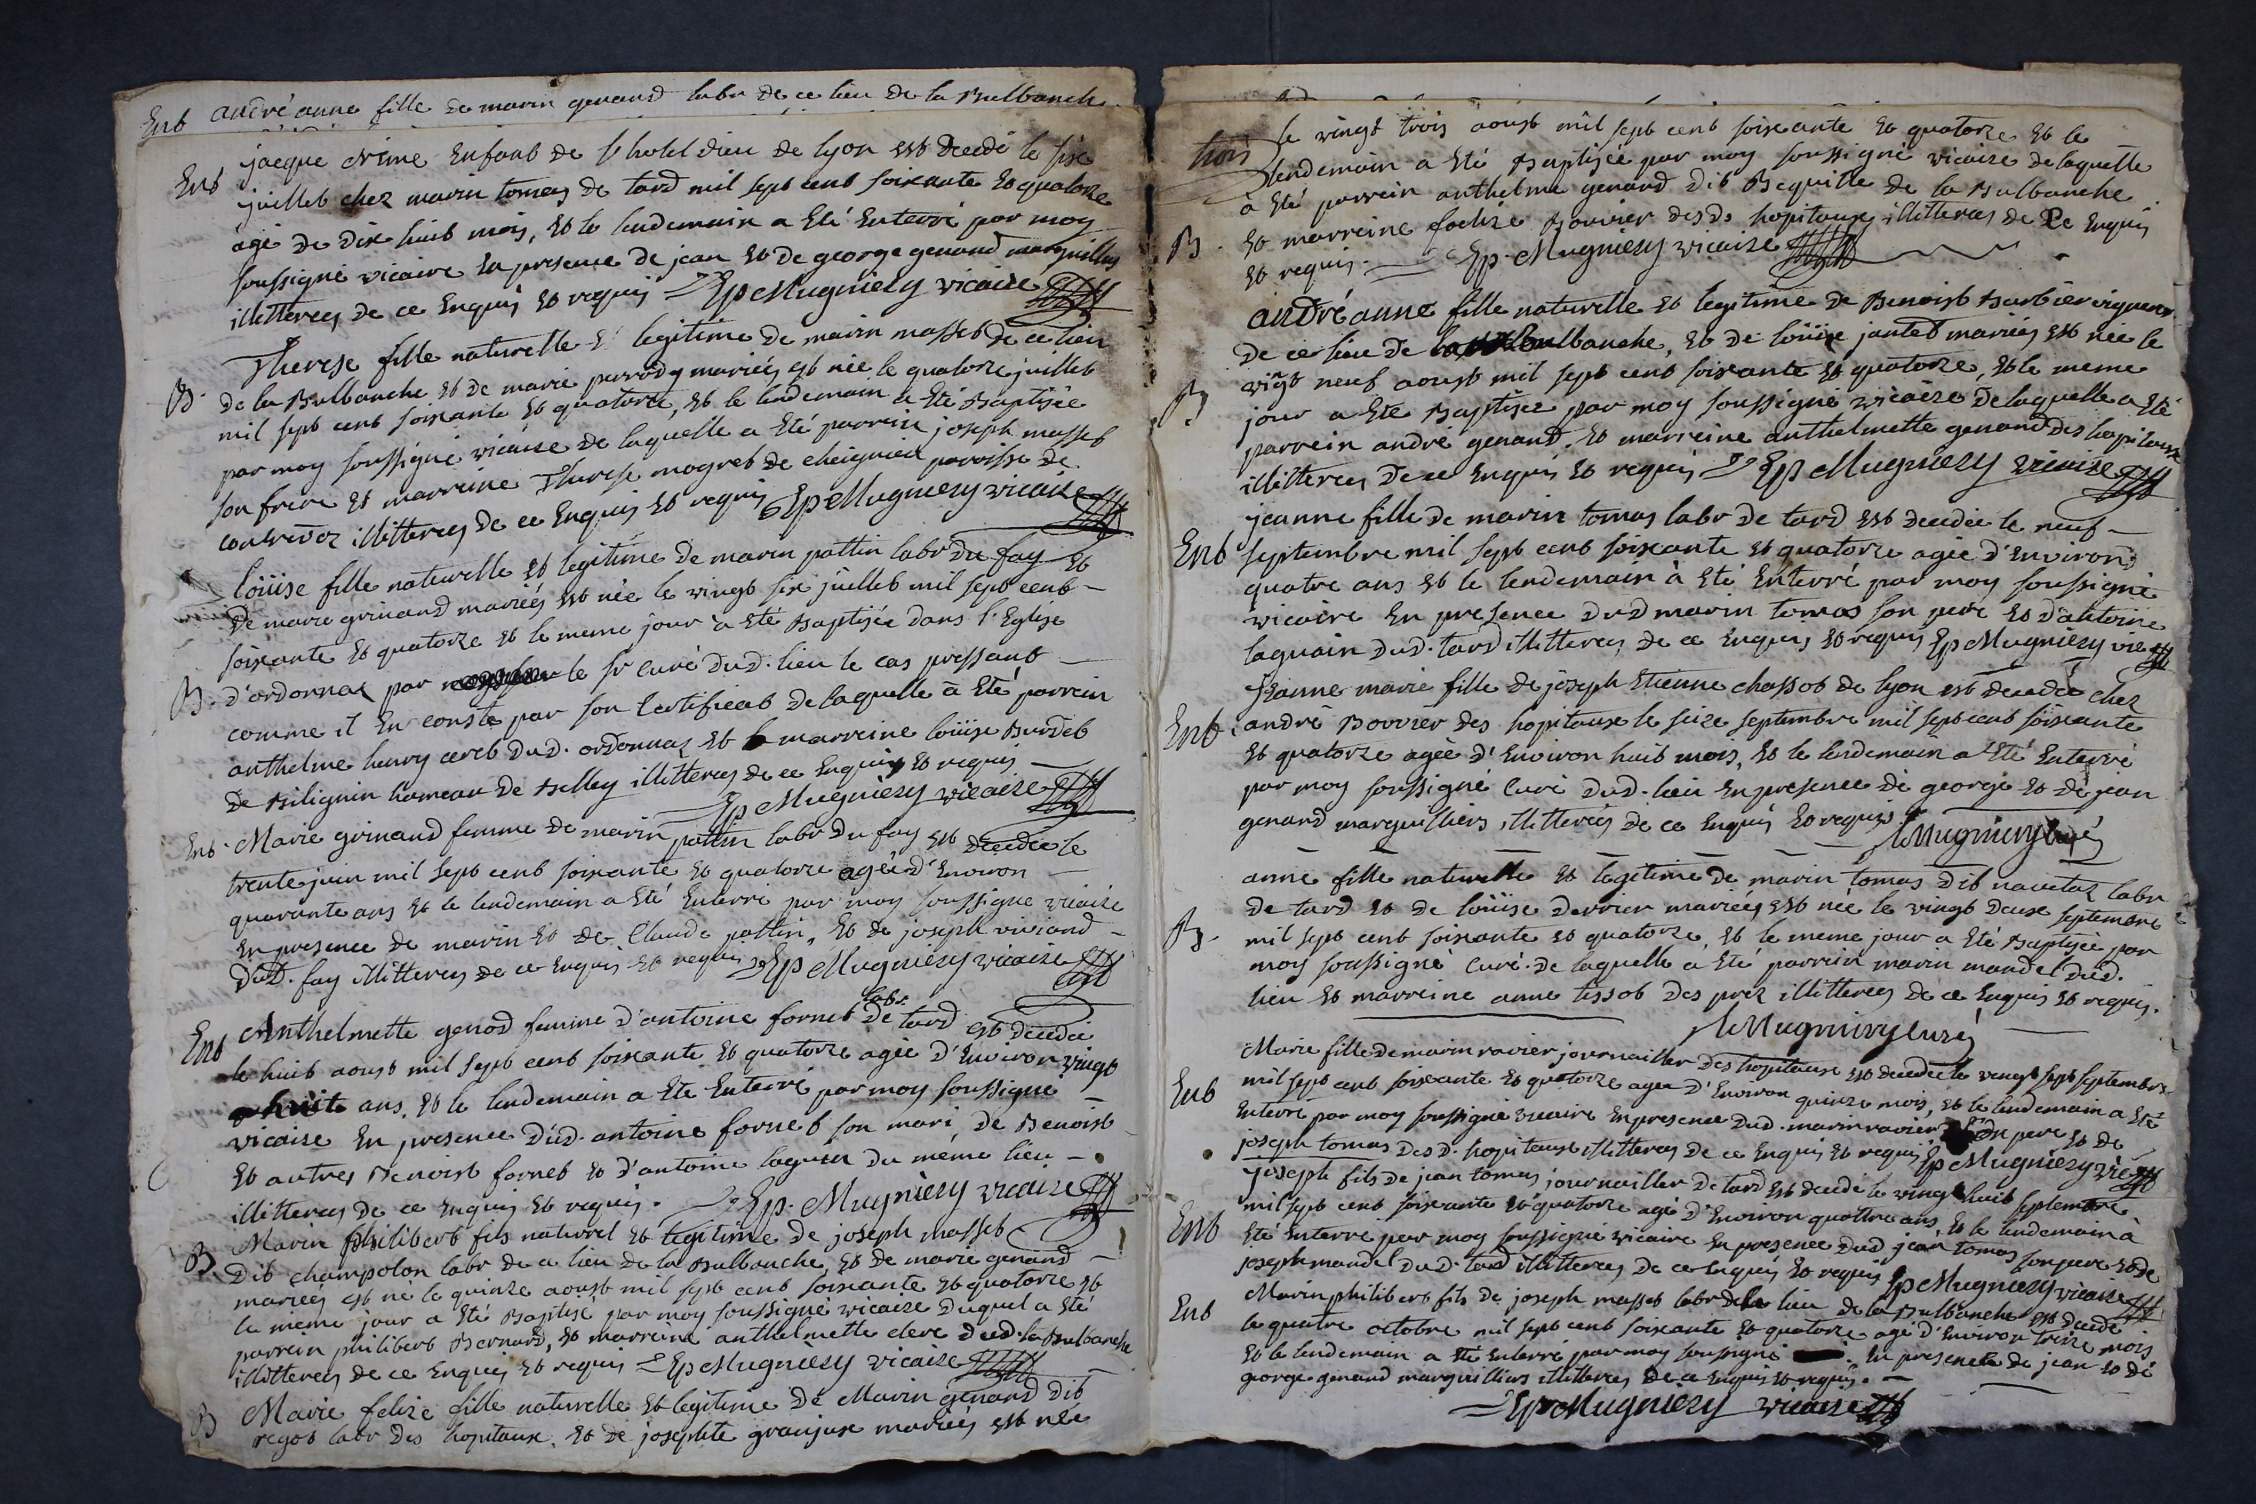 Ent andré anne fille de marin genand labr de ce lieu de la Bulbanche
Ent jacque crime Enfant de l'hotel dieu de lyon est decedé le six
juillet chez marin tomas de tard mil sept cent soixante Et quatorze
agé de dix huit mois, Et le lendemain a Eté Enterré par moy
soussigné vicaire En presence de jean Et de george genand marguilliers
illitterez de ce Enquis Et requis Ep Mugniery vicaire
B. Therese fille naturelle & legitime de marin masset de ce lieu
de la Bulbanche Et de marie mariés est née le quatorze juillet
mil sept cent soixante Et quatorze, Et le lendemain a Eté Baptisée
par moy soussigné vicaire de laquelle a Eté parrein joseph masset
son frere Et marreine Therese mogret de cheignieu paroisse de
contrevoz illitterez de ce Enquis Et requis Ep Mugniery vicaire
loüise fille naturelle Et legitime de marin pattin labr du fay Et
de marie grinand mariés est née le vingt six juillet mil sept cent
soixante Et quatorze Et le meme jour à Eté Baptisée dans l'Eglise
B. d'ordonnaz par le sr curé dud. lieu le cas pressant
comme il En conste par son Certificat de laquelle à Eté parrein
anthelme henry dud. ordonnaz Et marreine loüise Burdet
de Bilignin hameau de Belley illitterez de ce Enquis Et requis
Ep Mugniery vicaire
Ent. Marie grinand femme de marin pattin labr du fay est decedée le
trente juin mil sept cent soixante Et quatorze agée d'Environ
quarante ans Et le lendemain a Eté Enterré par moy soussigné vicaire
En presence de marin Et de Claude pattin, Et de joseph viviand
dud. fay illitterez de ce Enquis Et requis Ep Mugniery vicaire
Ent Anthelmette genod femme d'antoine fornet labr de tard est decedée
le huit aoust mil sept cent soixante Et quatorze agée d'Environ vingt
huite ans, Et le lendemain a Eté Enterré par moy soussigné
vicaire En presence dud. antoine fornet son mari, de Benoist
Et autres Benoist fornet Et d'antoine laguin du meme lieu
illitterez de ce Enquis Et requis. Ep. Mugniery vicaire
B Marin philibert fils naturel Et legitime de joseph masset
dit champolon labr de ce lieu de la Bulbanche, Et de marie genand
mariés est né le quinze aoust mil sept cent soixante Et quatorze Et
le meme jour a Eté Baptisé par moy soussigné vicaire duquel a Eté
parrein philibert Bernard, Et marreine anthelmette clerc dud. la Bulbanche
illitterez de ce Enquis Et requis Ep Mugniery vicaire
B Marie felize fille naturelle Et legitime de Marin genand dit
regot labr des hopitaux, Et de josephte granjux mariés est née
trois le vingt trois aoust mil sept cent soixante Et quatorze Et le
lendemain a Eté Baptisée par moy soussigné vicaire de laquelle
à Eté parrein anthelme genand dit Bequille de la Bulbanche
B. Et marreine foelize Bouvier desd. hopitaux illitterez de ce Enquis
Et requis. Ep. Mugniery vicaire
andré anne fille naturelle Et legitime de Benoist Barbier vigneron
de ce lieu de la Bulbanche, Et de loüise jantet mariés est née le
B vigt neuf aoust mil sept cent soixante Et quatorze, Et le meme
jour a Eté Baptisée par moy soussigné vicaire de laquelle a Eté
parrein andré genand, Et marreine anthelmette genand des hopitaux
illitterez de ce Enquis Et requis Ep Mugniery vicaire
jeanne fille de marin tomas labr de tard est decedée le neuf
Ent septembre mil sept cent soixante Et quatorze agée d'Environ
quatre ans Et le lendemain à Eté Enterré par moy soussigné
vicaire En presence dud marin tomas son pere Et d'antoine
laguain dud. tard illitterez de ce Enquis Et requis Ep Mugniery vic
Jeanne marie fille de joseph Etienne chassot de lyon est decedée chez
Ent. andré Bovvier des hopitaux le seize septembre mil sept cent soixante
Et quatorze agée d'Environ huit mois, Et le lendemain a Eté Enterré
par moy soussigné Curé dud. lieu En presence de george Et de jean
genand marguilliers illitterés de ce Enquis Et requis.
Mugniery Curé
anne fille naturelle Et legitime de marin tomas dit navetaz labr
de tard Et de loüise derrier mariés est née le vingt deux septembre
B. mil sept cent soixante Et quatorze, Et le meme jour a Eté Baptisée par
moy soussigné Curé. de laquelle a Eté parrein marin mandel dud.
lieu Et marreine anne tissot des prez illitterez de ce Enquis Et requis.
Mugniery curé
Marie fille de marin ravier journailler des hopitaux est decedée le vingt sept septembre
Ent mil sept cent soixante Et quatorze agée d'Environ quinze mois, Et le lendemain a Eté
Enterré par moy soussigné vicaire En presence dud. marin ravier son pere Et de
joseph tomas desd. hopitaux illitterez de ce Enquis Et requis Ep Mugniery vic
joseph fils de jean tomas journailler de tard est decedé le vingt huit septembre
Ent mil sept cent soixante Et quatorze agé d'Environ quattre ans, Et le lendemain à
Eté Enterré par moy soussigné vicaire En presence dud jean tomas son pere Et de
joseph mandel dud. tard illitterez de ce Enquis Et requis Ep Mugniery vicaire
Marin philibert fils de joseph masset labr de ce lieu de la Bulbanche est decedé
Ent le quatre octobre mil sept cent soixante Et quatorze agé d'Environ treize mois
Et le lendemain a Eté Enterré par moy soussigné En presence de jean Et de
george genand marguilliers illitterez de ce Enquis Et requis.
Ep Mugniery vicaire